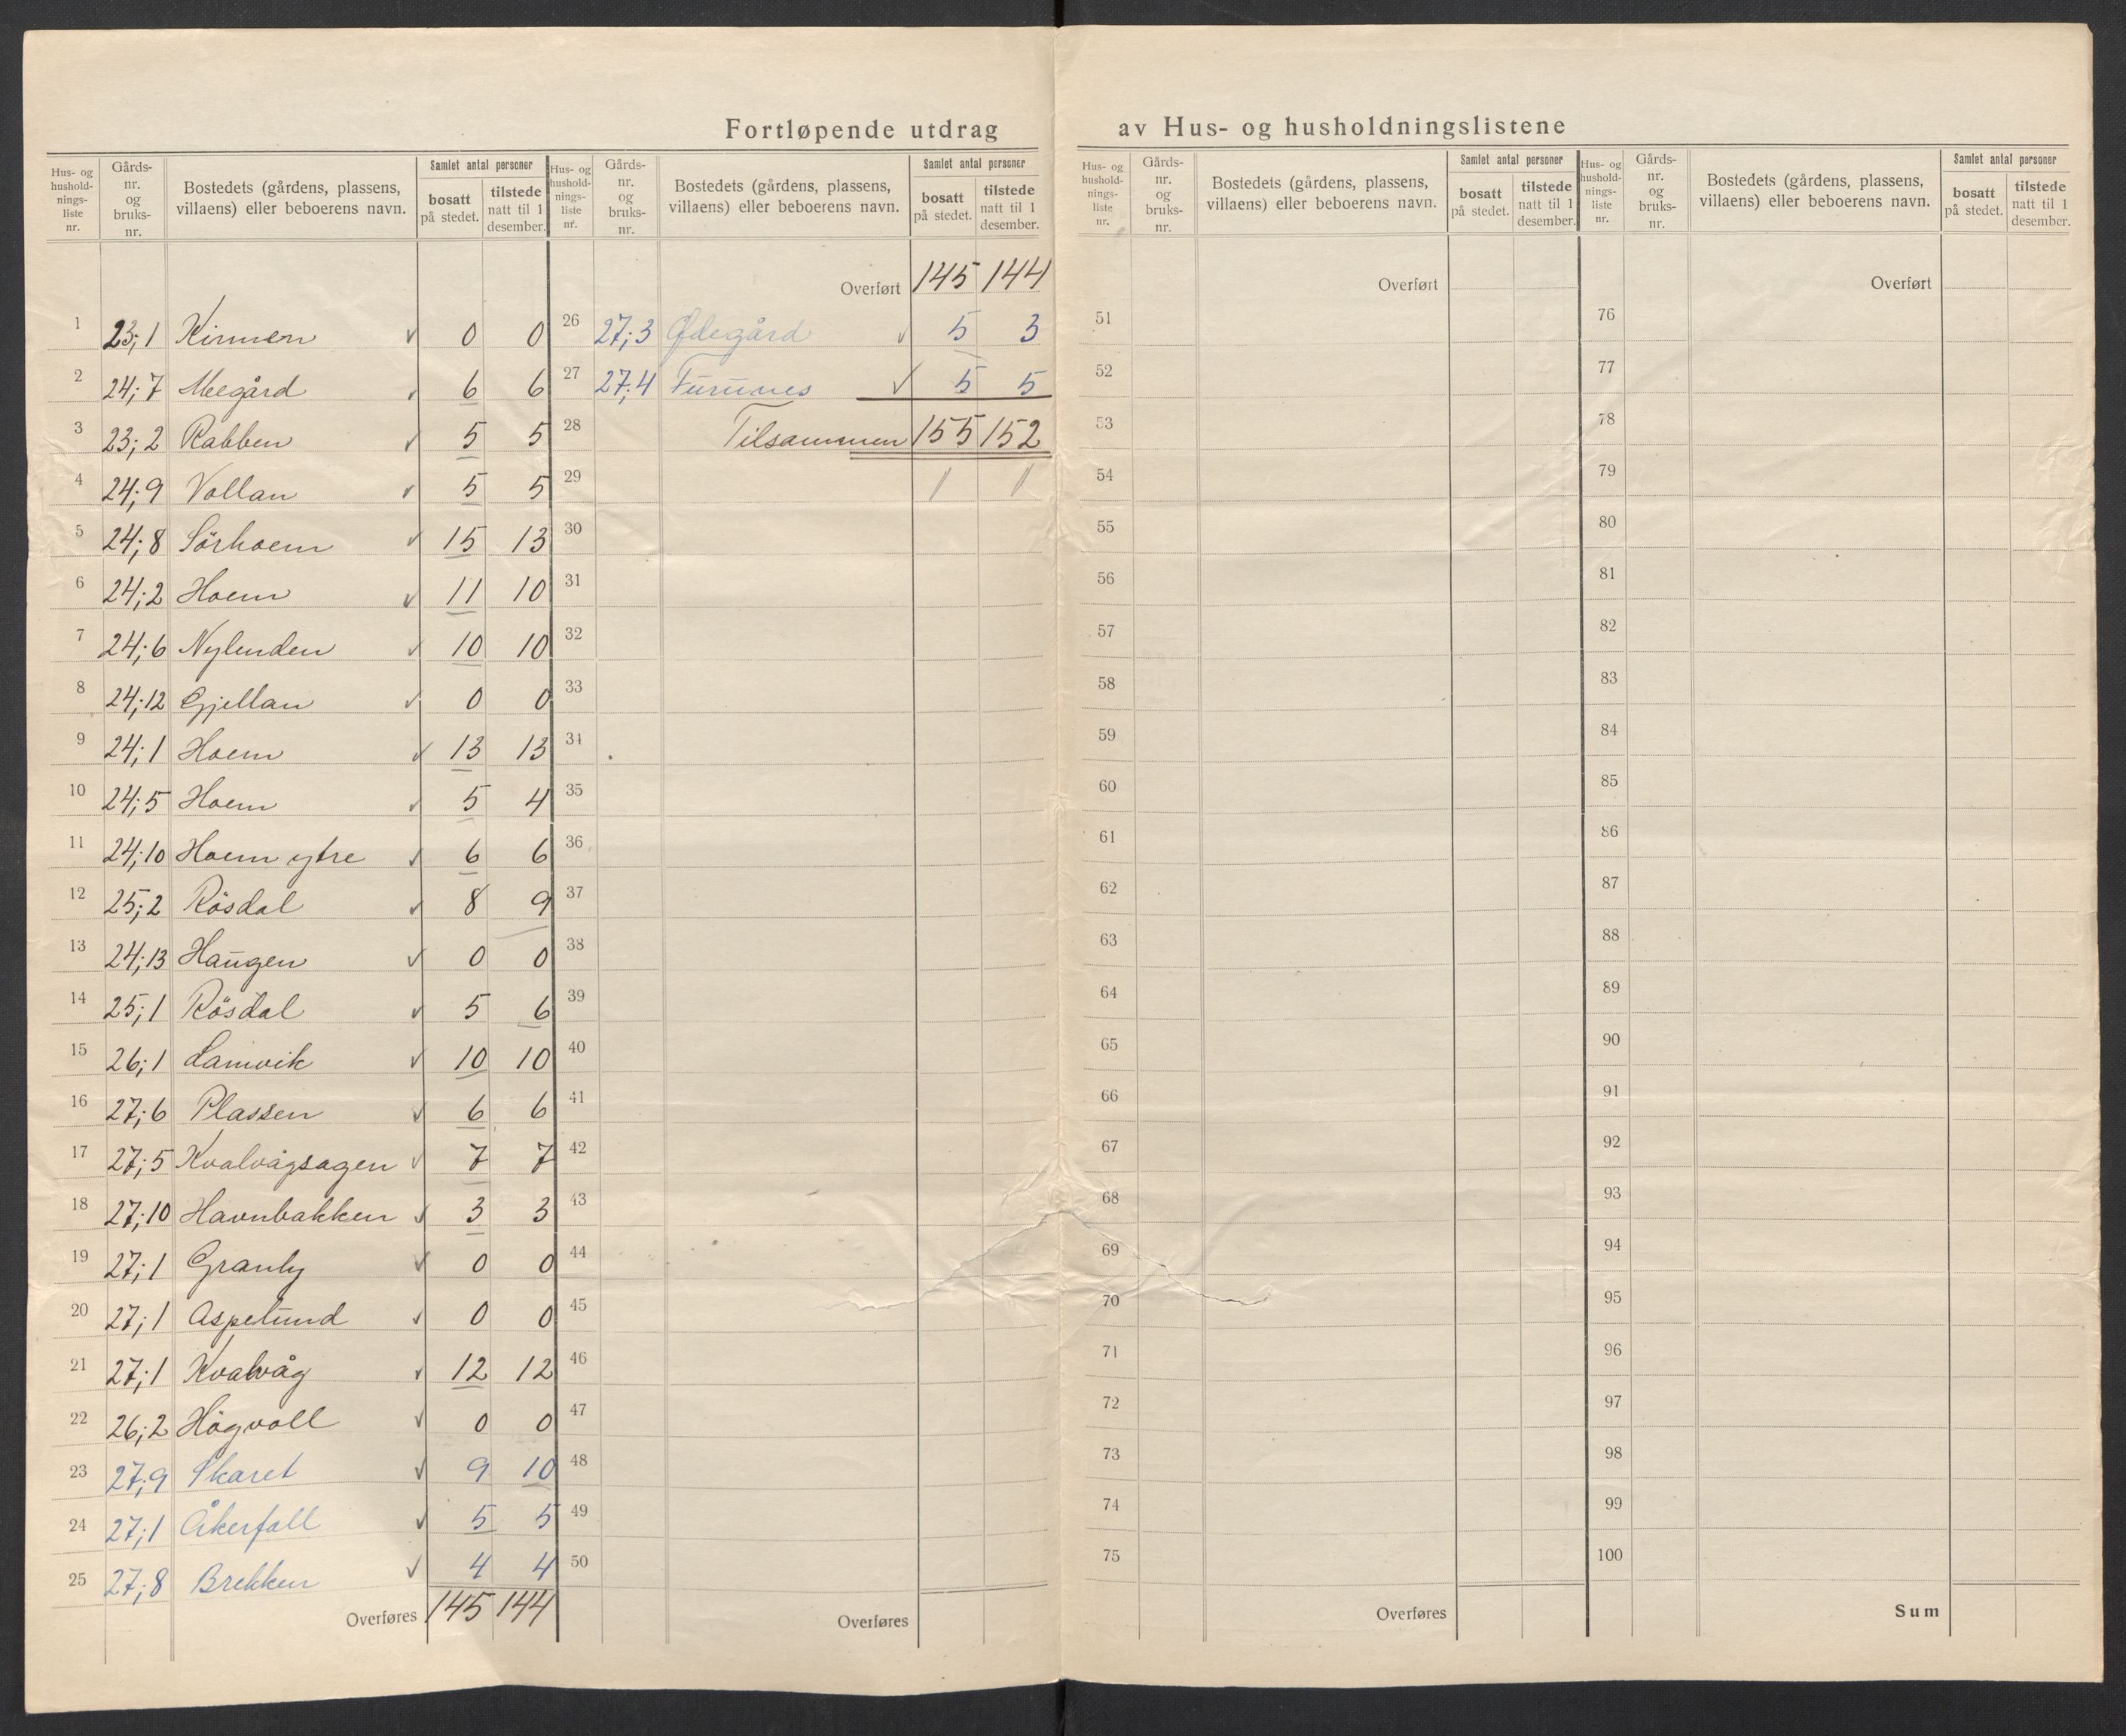 Fortløpende utdrag av Hus- og husholdningslistene
Hus- og hushold- nings- liste nr.
Gårds- nr. og bruks- nr.
Bostedets (gårdens, plassens, villaens) eller beboerens navn.
Samlet antal personer
bosatt på stedet.
tilstede natt til 1 desember.
1 23;1 Kinnen 0 0
2 24;7 Melgård 6 6
3 23;2 Rabben 5 5
4 24;9 Vollan 5 5
5 24;8 Sörhoem 15 13
6 24;2 Hoem 11 10
7 24;6 Nylenden 10 10
8 24;12 Gjellan 0 0
9 24;1 Hoem 13 13
10 24;5 Hoem 5 4
11 24;10 Hoem ytre 6 6
12 25;2 Rösdal 8 9
13 24;13 Haugen 0 0
14 25;1 Rösdal 5 6
15 26;1 Lamvik 10 10
16 27;6 Plassen 6 6
17 27;5 Kvalvågsagen 7 7
18 27;10 Havnbakken 3 3
19 27;1 Granly 0 0
20 27;1 Aspelund 0 0
21 27;1 Kvalvåg 12 12
22 26;2 Högvoll 0 0
23 27;9 Skaret 9 10
24 27;1 Åkerfall 5 5
25 27;8 Brekken 4 4
Overføres 145 144
Hus- og hushold- nings- liste nr.
Gårds- nr. og bruks- nr.
Bostedets (gårdens, plassens, villaens) eller beboerens navn.
Samlet antal personer
bosatt på stedet.
tilstede natt til 1 desember.
Overført 145 144
26 27;3 Ødegård 5 3
27 27;4 Furunes 5 5
28 Tilsammen 155 152
29
30
31
32
33
34
35
36
37
38
39
40
41
42
43
44
45
46
47
48
49
50
Overføres
Hus- og hushold- nings- liste nr.
Gårds- nr. og bruks- nr.
Bostedets (gårdens, plassens, villaens) eller beboerens navn.
Samlet antal personer
bosatt på stedet.
tilstede natt til 1 desember.
Overført
51
52
53
54
55
56
57
58
59
60
61
62
63
64
65
66
67
68
69
70
71
72
73
74
75
Overføres
Hus- og hushold- nings- liste nr.
Gårds- nr. og bruks- nr.
Bostedets (gårdens, plassens, villaens) eller beboerens navn.
Samlet antal personer
bosatt på stedet.
tilstede natt til 1 desember.
Overført
76
77
78
79
80
81
82
83
84
85
86
87
88
89
90
91
92
93
94
95
96
97
98
99
100
Sum